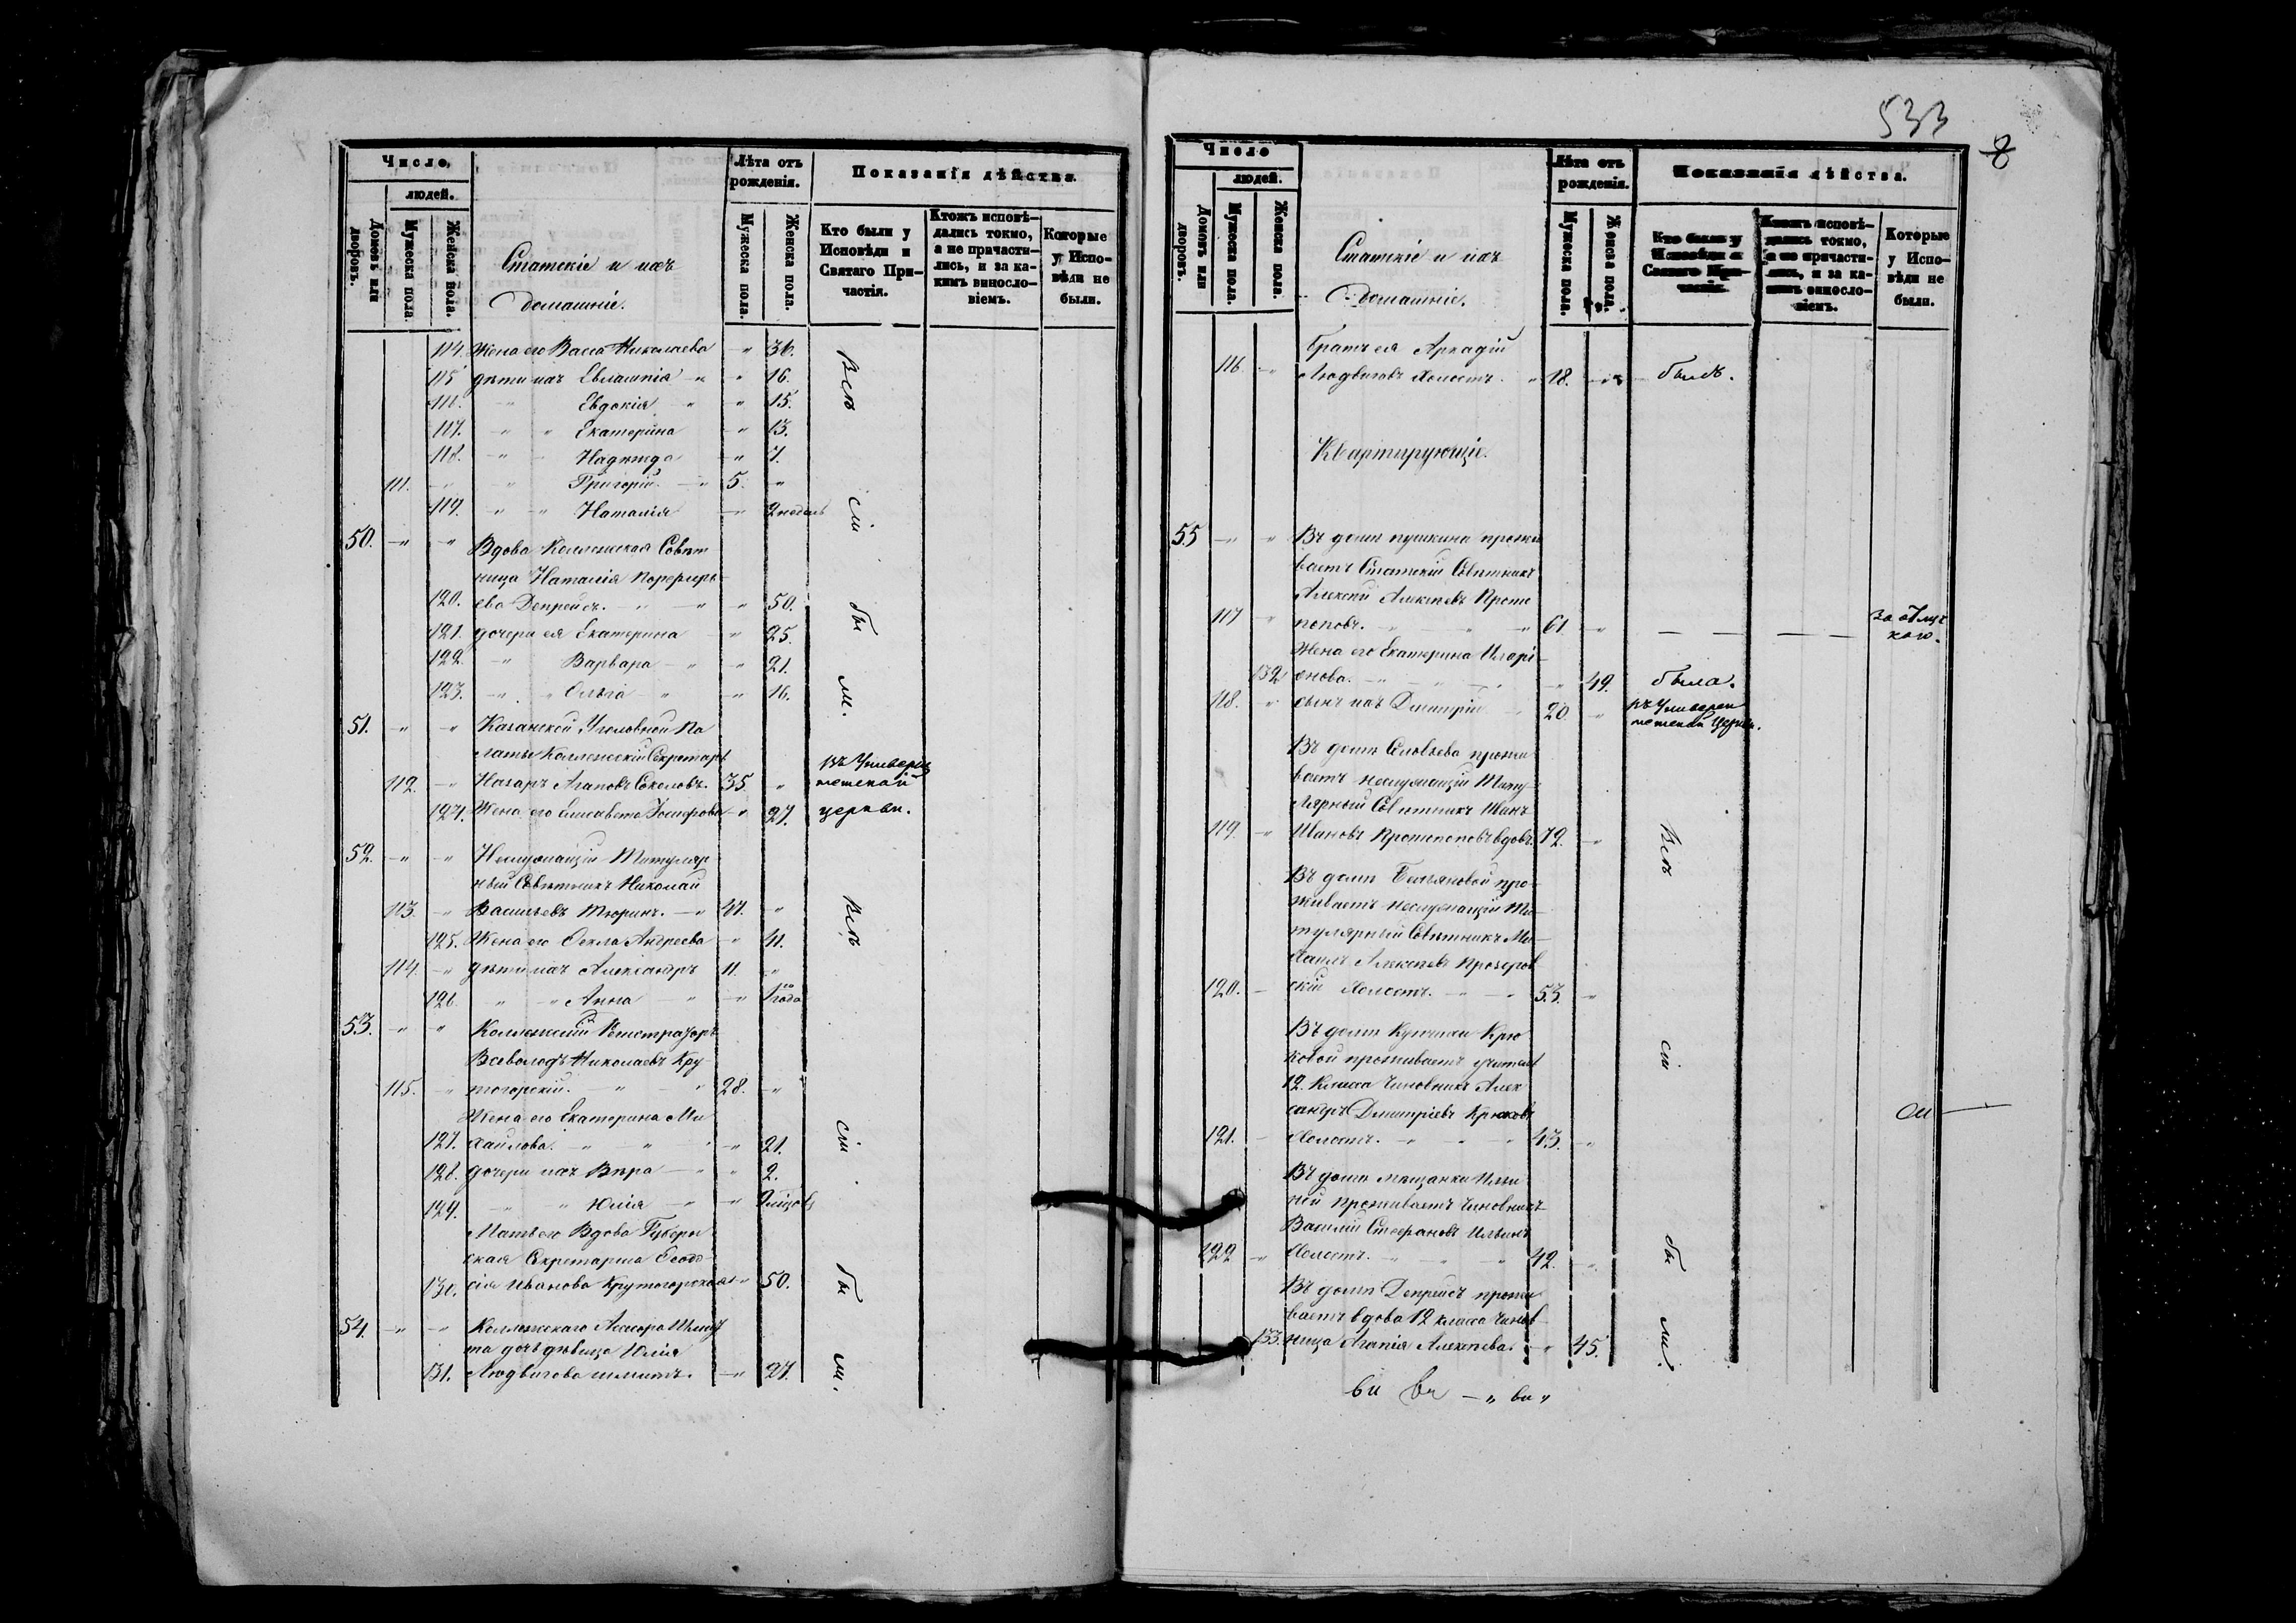 Число,
людей.
Домовъ или дворовъ.
Мужеска пола.
Женска пола.
Статскіе и ихъ
домашніе.
Лѣта отъ рожденія.
Мужеска пола.
Женска пола.
Показанія дѣйства.
Кто были у Исповѣди и Святаго Причастія.
Ктожъ исповѣдались токмо, а не причастились, и за какимъ винословіемъ.
Которые у Исповѣди не были.
114. Жена его Васса Николаева " 36.
115 дѣти ихъ Евлампія " " 16.
116. " Евдокія " " 15.
117. " " Екатерина " 13.
118. " " Надежда " 7.
111. " " Григорій " 5. "
119. " " Наталія " 2 недѣль
Всѣ сіи бы ли.
50. " " Вдова Коллежская Совѣт
ница Наталія Порфирь
120. ева Депрейсъ. " " " 50.
121. дочери ея Екатерина " 25.
122. " Варвара " " 21.
123. " " Ольга " " 16.
51. " " Казанской Уголовной Па
латы Коллежскій Секретарь
112. " Назаръ Агаповъ Соколовъ. 35. "
124. Жена его Елисавета Іосифова " 27.
въ Универси
тетской
церкви.
52. " " Неслужащій Титуляр
ный Совѣтникъ Николай
113. " Васильевъ Тюринъ. " 47. "
125. Жена его Фекла Андреева " 41.
114. " дѣти ихъ Александръ 11. "
126. " " Анна " " 1 года
Всѣ сіи бы ли.
53. " " Коллежскій Регистраторъ
Всеволодъ Николаевъ Кру
115. " тогорскій. " " 28. "
Жена его Екатерина Ми
127. хайлова. " " " " 21.
128. дочери ихъ Вѣра " " 2.
129. " " Юлія " "
Мать его Вдова Губерн
ская Секретарша Феодо
130. сія Иванова Крутогорская " 50.
54. " " Коллежскаго Асессора Шмид
та дочь дѣвица Юлія
131. Людвигова Шмитъ. " 27.
533
8
Число
людей.
Домовъ или дворовъ.
Мужеска пола.
Женска пола.
Статскіе и ихъ
домашніе.
Лѣта отъ рожденія.
Мужеска пола.
Женска пола.
Показанія дѣйства.
Кто были у Исповѣди и Святаго Причастія.
Ктожъ исповѣдались токмо, а не причастились, и за какимъ винословіемъ.
Которые у Исповѣди не были.
Братъ ея Аркадій
116. " Людвиговъ Холостъ. " 18. " былъ.
Квартирующіе.
55 " " Въ домѣ Пушкина прожи
ваетъ Статскій Совѣтникъ
Алексѣй Алексѣевъ Прото
117 " поповъ. " " " 61 "
за отлуч
кою.
Жена его Екатерина Иларі
132 онова. " " " 49. была.
118. " сынъ ихъ Димитрій " 20. "
въ Универси
тетской Церкви.
Въ домѣ Соловьева прожи
ваетъ неслужащій Титу
лярный Совѣтникъ Иванъ
119. " Ивановъ Протопоповъ вдовъ. 72. "
Всѣ сіи бы ли.
Въ домѣ Бельяновой про
живаетъ неслужащій Ти
тулярный Совѣтникъ Ми
хаилъ Алексѣевъ Прозоров
120. " скій Холостъ. " " 53. "
Въ домѣ Купчихи Крю
ковой проживаетъ учитель
12. Класса Чиновникъ Алек
сандръ Димитріевъ Крюковъ
121. " Холостъ. " " " 43. "
Въ домѣ мѣщанки Ильи
ной проживаетъ Чиновникъ
Василій Стефановъ Ильинъ
122 " Холостъ. " " " 42. "
Въ домѣ Депрейсъ прожи
ваетъ вдова 12 класса Чинов
133. ница Агапія Алексѣева. " 45.